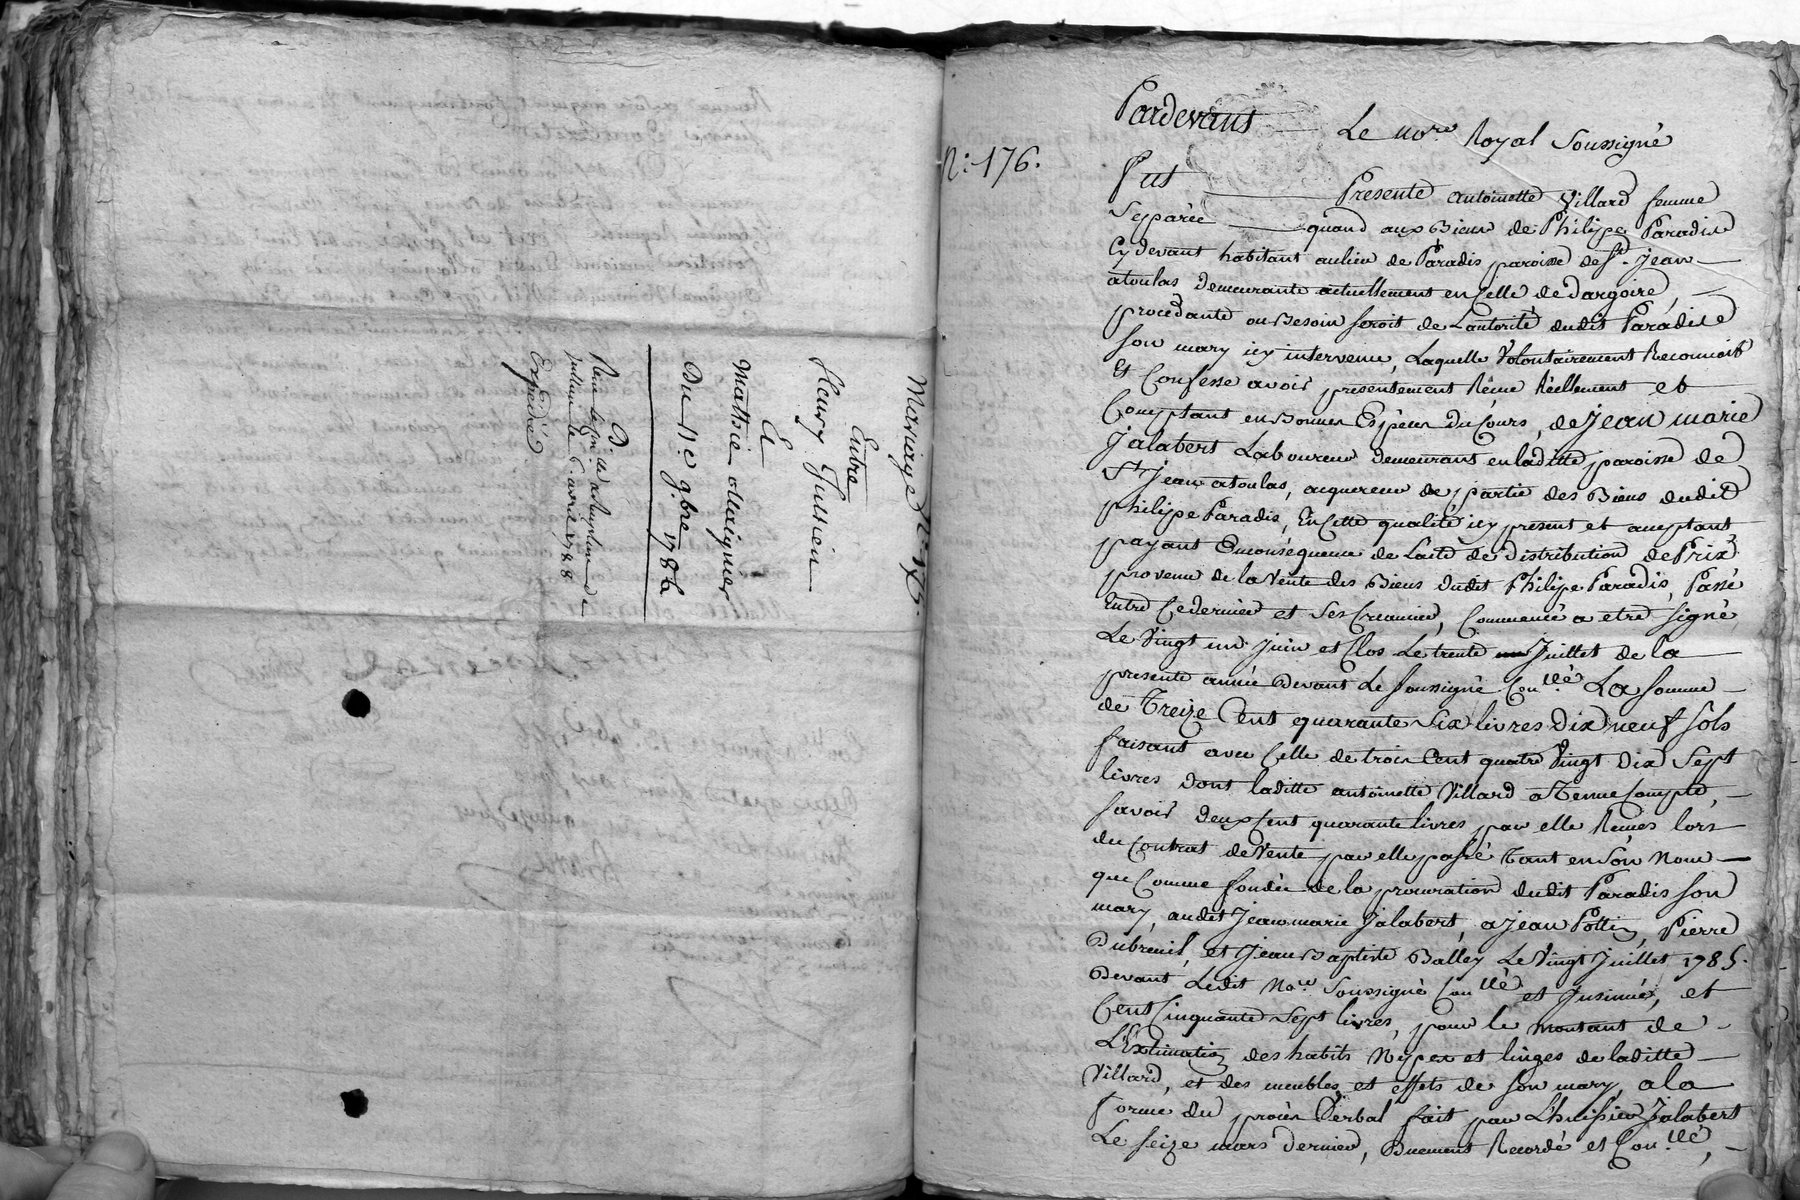 Mariage N.° 175.
Entre
Fleury Jullien
Et
Mathie
Du 11.e 9bre 1786
D
6. avril 1788
Expédié
N.° 176.
Pardevant Le No.re Royal Soussigné
Fut Presente antoinette Villard femme
Separée quand aux Biens de Philipe Paradis
Cydevant habitant aulieu de Paradis paroisse de St. Jean
atoulas demeurante actuellement en Celle de dargoire,
procedante ou Besoin seroit de Lautorité dudit Paradis
son mary icy intervenu, Laquelle Volontairement Reconnoit
Et Confesse avoir presentement Reçue Réellement et
Comptant en Bonnes Espèces du Cours, de Jean marie
Jalabert Laboureur demeurant en laditte paroisse de
St. Jean atoulas, acquereur de partie des Biens dudit
philipe Paradis, En Cette qualité icy present et aceptant
payant Enconséquence de Lacte de distribution de Prix
provenu de la Vente des Biens dudit Philipe Paradis, Passé
Entre Cedernier et Ses Creanciers, Commencé a etre signé
Le Vingt un Juin et Clos Le trente Juillet de la
presente année Devant Le Soussigné Con.llé La somme
de Treize Cent quarante Six livres Dix neuf Sols
faisant avec Celle de trois Cent quatre Vingt Dix Sept
livres dont laditte antoinette Villard a Tenue Compte,
savoir deux Cent quarante livres par elle Reçues lors
du Contrat de Vente par elle passé Tant en Son Nom
que Comme fondée de la procuration dudit Paradis son
mary, audit Jean marie Jalabert, a Jean Pottin, Pierre
Dubreuil, et Jean Baptiste Balley Le Vingt Juillet 1785.
Devant Ledit No.re Soussigné Con.llé et Insinué, et
Cent Cinquante Sept livres, pour le montant de
L'Extimation des habits Nypes et linges de laditte
Villard, et des meubles et effets de son mary, a la
forme du procès Verbal fait par L'huissier Jalabert
Le seize mars dernier, Duement Recordé et Con.llé,